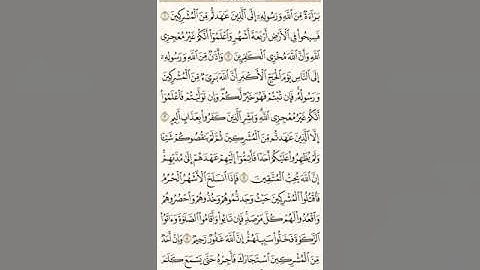 بَرَآءَةٌ مِّنَ ٱللَّهِ وَرَسُولِهِۦٓ إِلَى ٱلَّذِينَ عَٰهَدتُّم مِّنَ ٱلۡمُشۡرِكِينَ ١
فَسِيحُواْ فِي ٱلۡأَرۡضِ أَرۡبَعَةَ أَشۡهُرٖ وَٱعۡلَمُوٓاْ أَنَّكُمۡ غَيۡرُ مُعۡجِزِي
ٱللَّهِ وَأَنَّ ٱللَّهَ مُخۡزِي ٱلۡكَٰفِرِينَ ٢ وَأَذَٰنٞ مِّنَ ٱللَّهِ وَرَسُولِهِۦٓ
إِلَى ٱلنَّاسِ يَوۡمَ ٱلۡحَجِّ ٱلۡأَكۡبَرِ أَنَّ ٱللَّهَ بَرِيٓءٞ مِّنَ ٱلۡمُشۡرِكِينَ
وَرَسُولُهُۥۚ فَإِن تُبۡتُمۡ فَهُوَ خَيۡرٞ لَّكُمۡۖ وَإِن تَوَلَّيۡتُمۡ فَٱعۡلَمُوٓاْ
أَنَّكُمۡ غَيۡرُ مُعۡجِزِي ٱللَّهِۗ وَبَشِّرِ ٱلَّذِينَ كَفَرُواْ بِعَذَابٍ أَلِيمٍ ٣
إِلَّا ٱلَّذِينَ عَٰهَدتُّم مِّنَ ٱلۡمُشۡرِكِينَ ثُمَّ لَمۡ يَنقُصُوكُمۡ شَيۡـٔٗا
وَلَمۡ يُظَٰهِرُواْ عَلَيۡكُمۡ أَحَدٗا فَأَتِمُّوٓاْ إِلَيۡهِمۡ عَهۡدَهُمۡ إِلَىٰ مُدَّتِهِمۡۚ
إِنَّ ٱللَّهَ يُحِبُّ ٱلۡمُتَّقِينَ ٤ فَإِذَا ٱنسَلَخَ ٱلۡأَشۡهُرُ ٱلۡحُرُمُ
فَٱقۡتُلُواْ ٱلۡمُشۡرِكِينَ حَيۡثُ وَجَدتُّمُوهُمۡ وَخُذُوهُمۡ وَٱحۡصُرُوهُمۡ
وَٱقۡعُدُواْ لَهُمۡ كُلَّ مَرۡصَدٖۚ فَإِن تَابُواْ وَأَقَامُواْ ٱلصَّلَوٰةَ وَءَاتَوُاْ
ٱلزَّكَوٰةَ فَخَلُّواْ سَبِيلَهُمۡۚ إِنَّ ٱللَّهَ غَفُورٞ رَّحِيمٞ ٥ وَإِنۡ أَحَدٞ
مِّنَ ٱلۡمُشۡرِكِينَ ٱسۡتَجَارَكَ فَأَجِرۡهُ حَتَّىٰ يَسۡمَعَ كَلَٰمَ